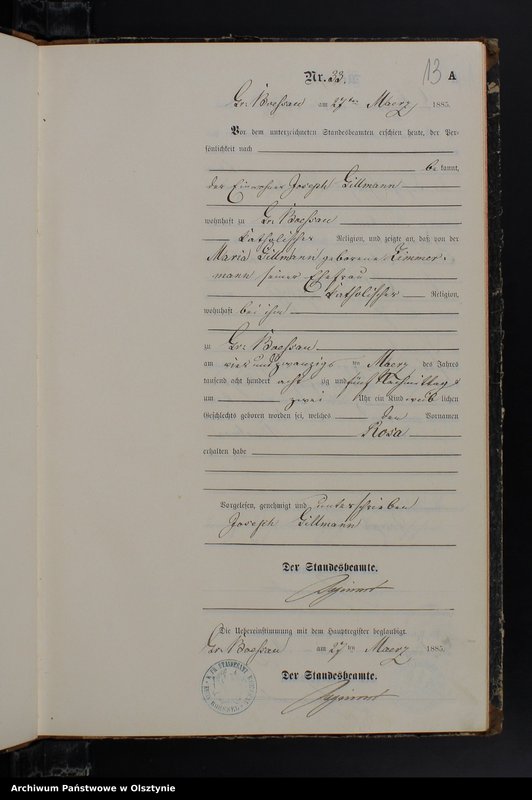 Nr. 33.
13 A
Gr. Boessau am 27ten Maerz 1885.
Vor dem unterzeichneten Standesbeamten erschien heute, der Per-
sönlichkeit nach
be kannt,
der Einwohner Joseph Dittmann
wohnhaft zu Gr. Boessau
katholischer Religion, und zeigte an, daß von der
Maria Dittmann geborene Zimmer-
mann seiner Ehefrau
katholischer Religion,
wohnhaft bei ihm
zu Gr. Boessau
am vierundzwanzigsten Maerz des Jahres
tausend acht hundert acht zig und fünf Nachmittags
um zwei Uhr ein Kind weib lichen
Geschlechts geboren worden sei, welches den Vornamen
Rosa
erhalten habe
Vorgelesen, genehmigt und unterschrieben
Joseph Dittmann
Der Standesbeamte.
Die Uebereinstimmung mit dem Hauptregister beglaubigt.
Gr. Boessau am 27ten Maerz 1885.
Der Standesbeamte.
Archiwum Państwowe w Olsztynie